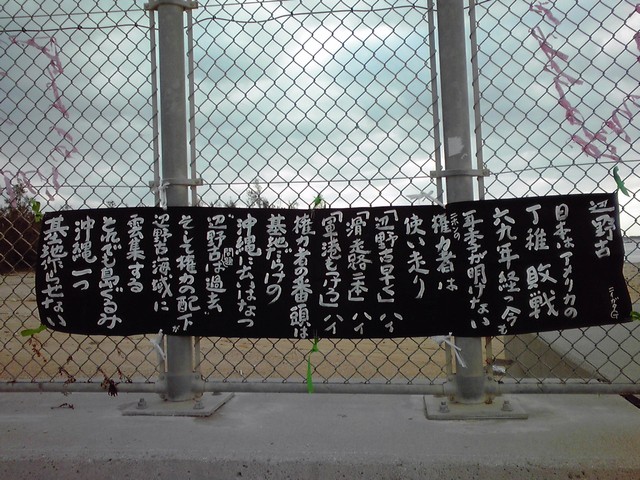 辺野古
日本はアメリカの
丁稚 敗戦
六九年経つ今も
年季が明けない
ニホンの
権力者は
使い走り
「辺野古早く」ハイ
「滑走路二本」ハイ
「軍港も付けろ」ハイ
権力者の番頭は
基地だらけの
沖縄に云いはなつ
“辺野古問題は過去”
そして権力の配下が
辺野古海域に
雲集する
島ぐるみ
沖縄一つ
基地させない